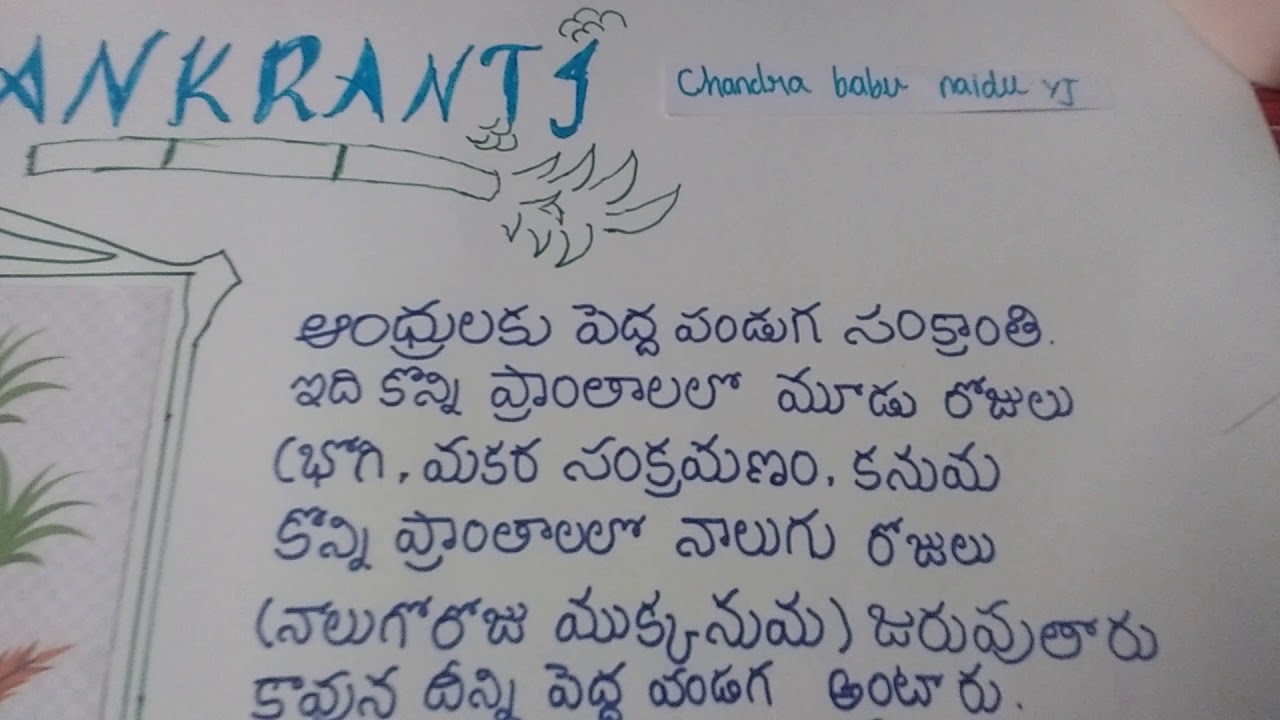 ANKRANTI
Chandra babu naidu YJ
ఆంధ్రులకు పెద్ద పండుగ సంక్రాంతి.
ఇది కొన్ని ప్రాంతాలలో మూడు రోజులు
(భోగి, మకర సంక్రమణం, కనుమ
కొన్ని ప్రాంతాలలో నాలుగు రోజులు
(నాలుగోరోజు ముక్కనుమ) జరుపుతారు
కావున దీన్ని పెద్ద పండగ అంటారు.